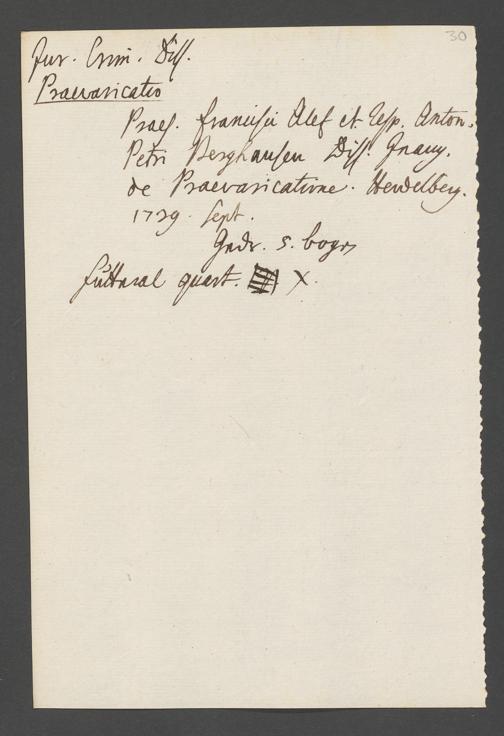 30
Jur. Crim. Diss.
Praevaricatio
Praes. Francisci Alef et Resp. Anton.
Petri Berghausen Diss. Inaug.
de Praevaricatione. Heydelberg.
1729. Sept.
5. bogn
futteral quart. X.